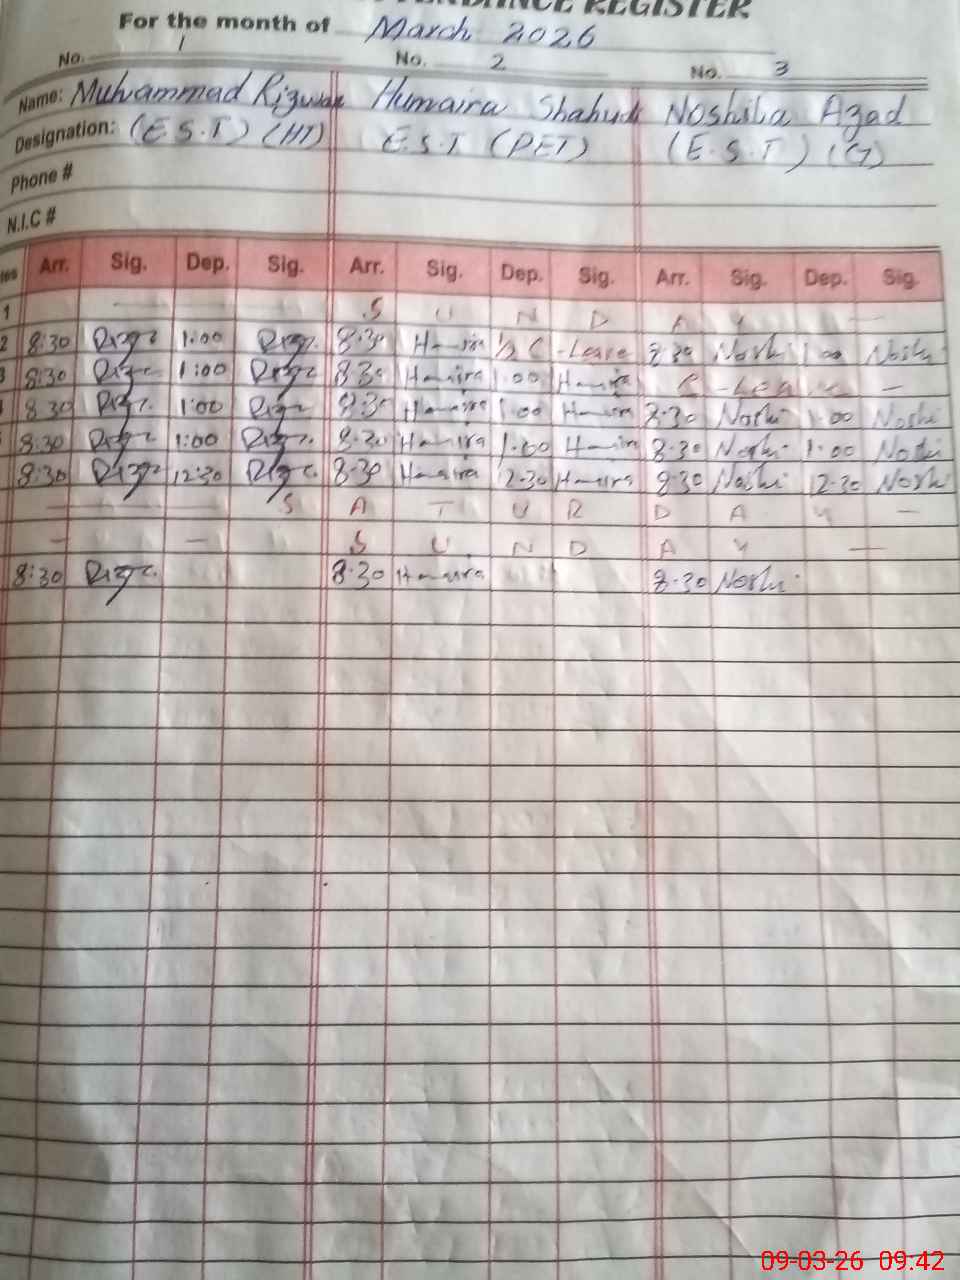 ATTENDANCE REGISTER
For the month of March 2026
No. 1 No. 2 No. 3
Name: Muhammad Rizwan Humaira Shahid Noshila Azad
Designation: (E.S.T) (HT) E.S.T (PET) (E.S.T)
Phone #
N.I.C #
Arr. Sig. Dep. Sig. Arr. Sig. Dep. Sig. Arr. Sig. Dep. Sig.
1 — — — S U N D A Y —
2 8:30 1:00 8:30 Humaira ½ C-Leave 8:30 Noshi 1:00 Noshi
3 8:30 1:00 8:30 Humaira 1:00 Humaira C-Leave —
8:30 1:00 8:30 Humaira 1:00 Humaira 8:30 Noshi 1:00 Noshi
8:30 1:00 8:30 Humaira 1:00 Humaira 8:30 Noshi 1:00 Noshi
8:30 12:30 8:30 Humaira 12:30 Humaira 8:30 Noshi 12:30 Noshi
— — — S A T U R D A Y —
— — S U N D A Y —
8:30 8:30 Humaira 8:30 Noshi
09-03-26 09:42